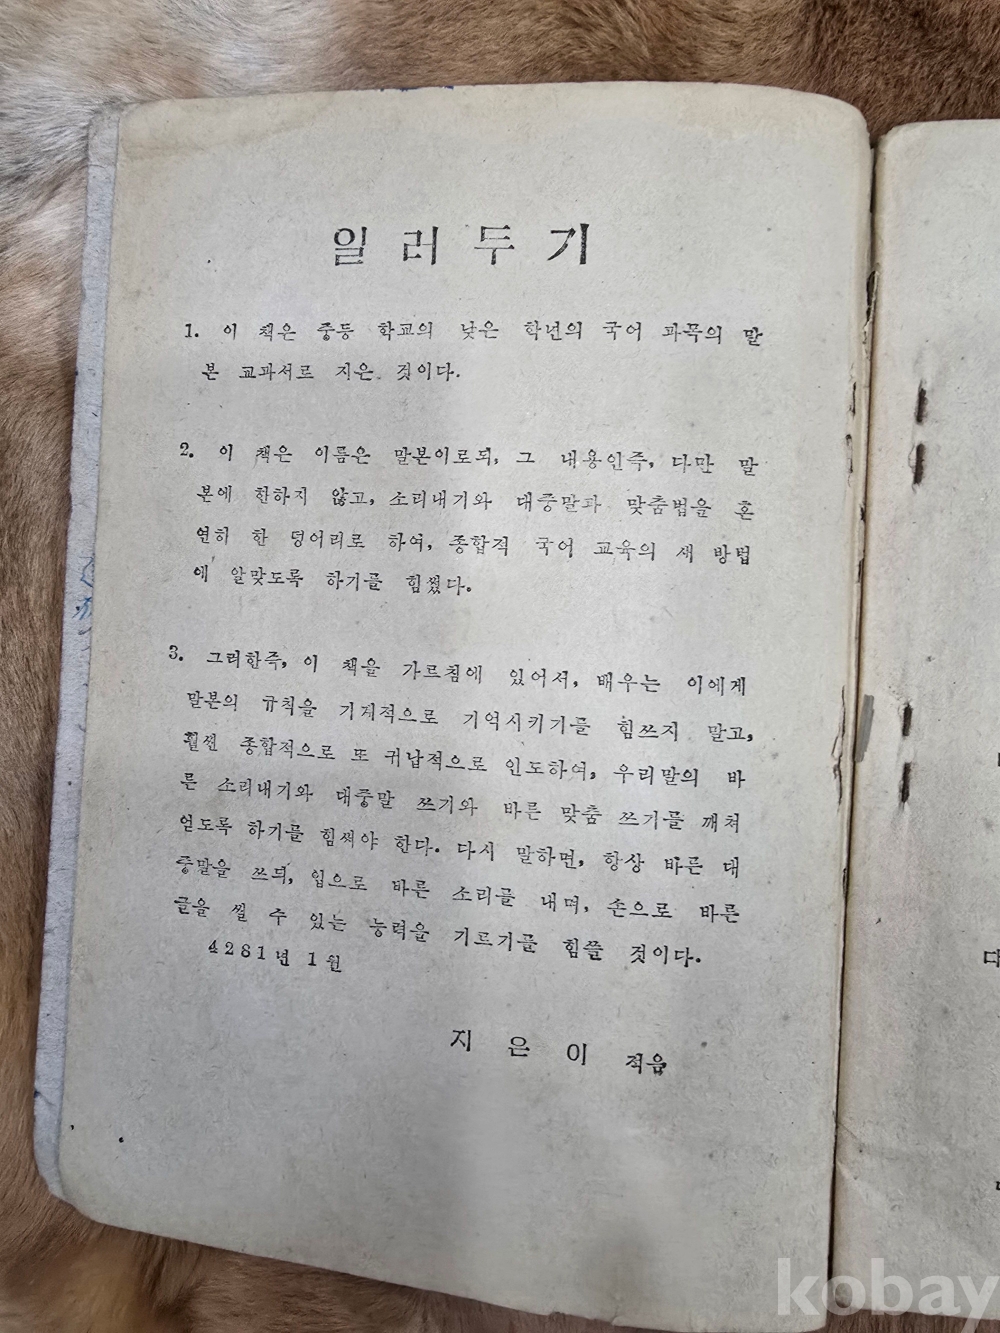 일러두기
1. 이 책은 중등 학교의 낮은 학년의 국어 과목의 말
본 교과서로 지은 것이다.
2. 이 책은 이름은 말본이로되, 그 내용인즉, 다만 말
본에 한하지 않고, 소리내기와 대중말과 맞춤법을 혼
연히 한 덩어리로 하여, 종합적 국어 교육의 새 방법
에 알맞도록 하기를 힘썼다.
3. 그러한즉, 이 책을 가르침에 있어서, 배우는 이에게
말본의 규칙을 기계적으로 기억시키기를 힘쓰지 말고,
훨씬 종합적으로 또 귀납적으로 인도하여, 우리말의 바
른 소리내기와 대중말 쓰기와 바른 맞춤 쓰기를 깨쳐
얻도록 하기를 힘써야 한다. 다시 말하면, 항상 바른 대
중말을 쓰되, 입으로 바른 소리를 내며, 손으로 바른
글을 쓸 수 있는 능력을 기르기를 힘쓸 것이다.
4281년 1월
지은이 적음
kobay